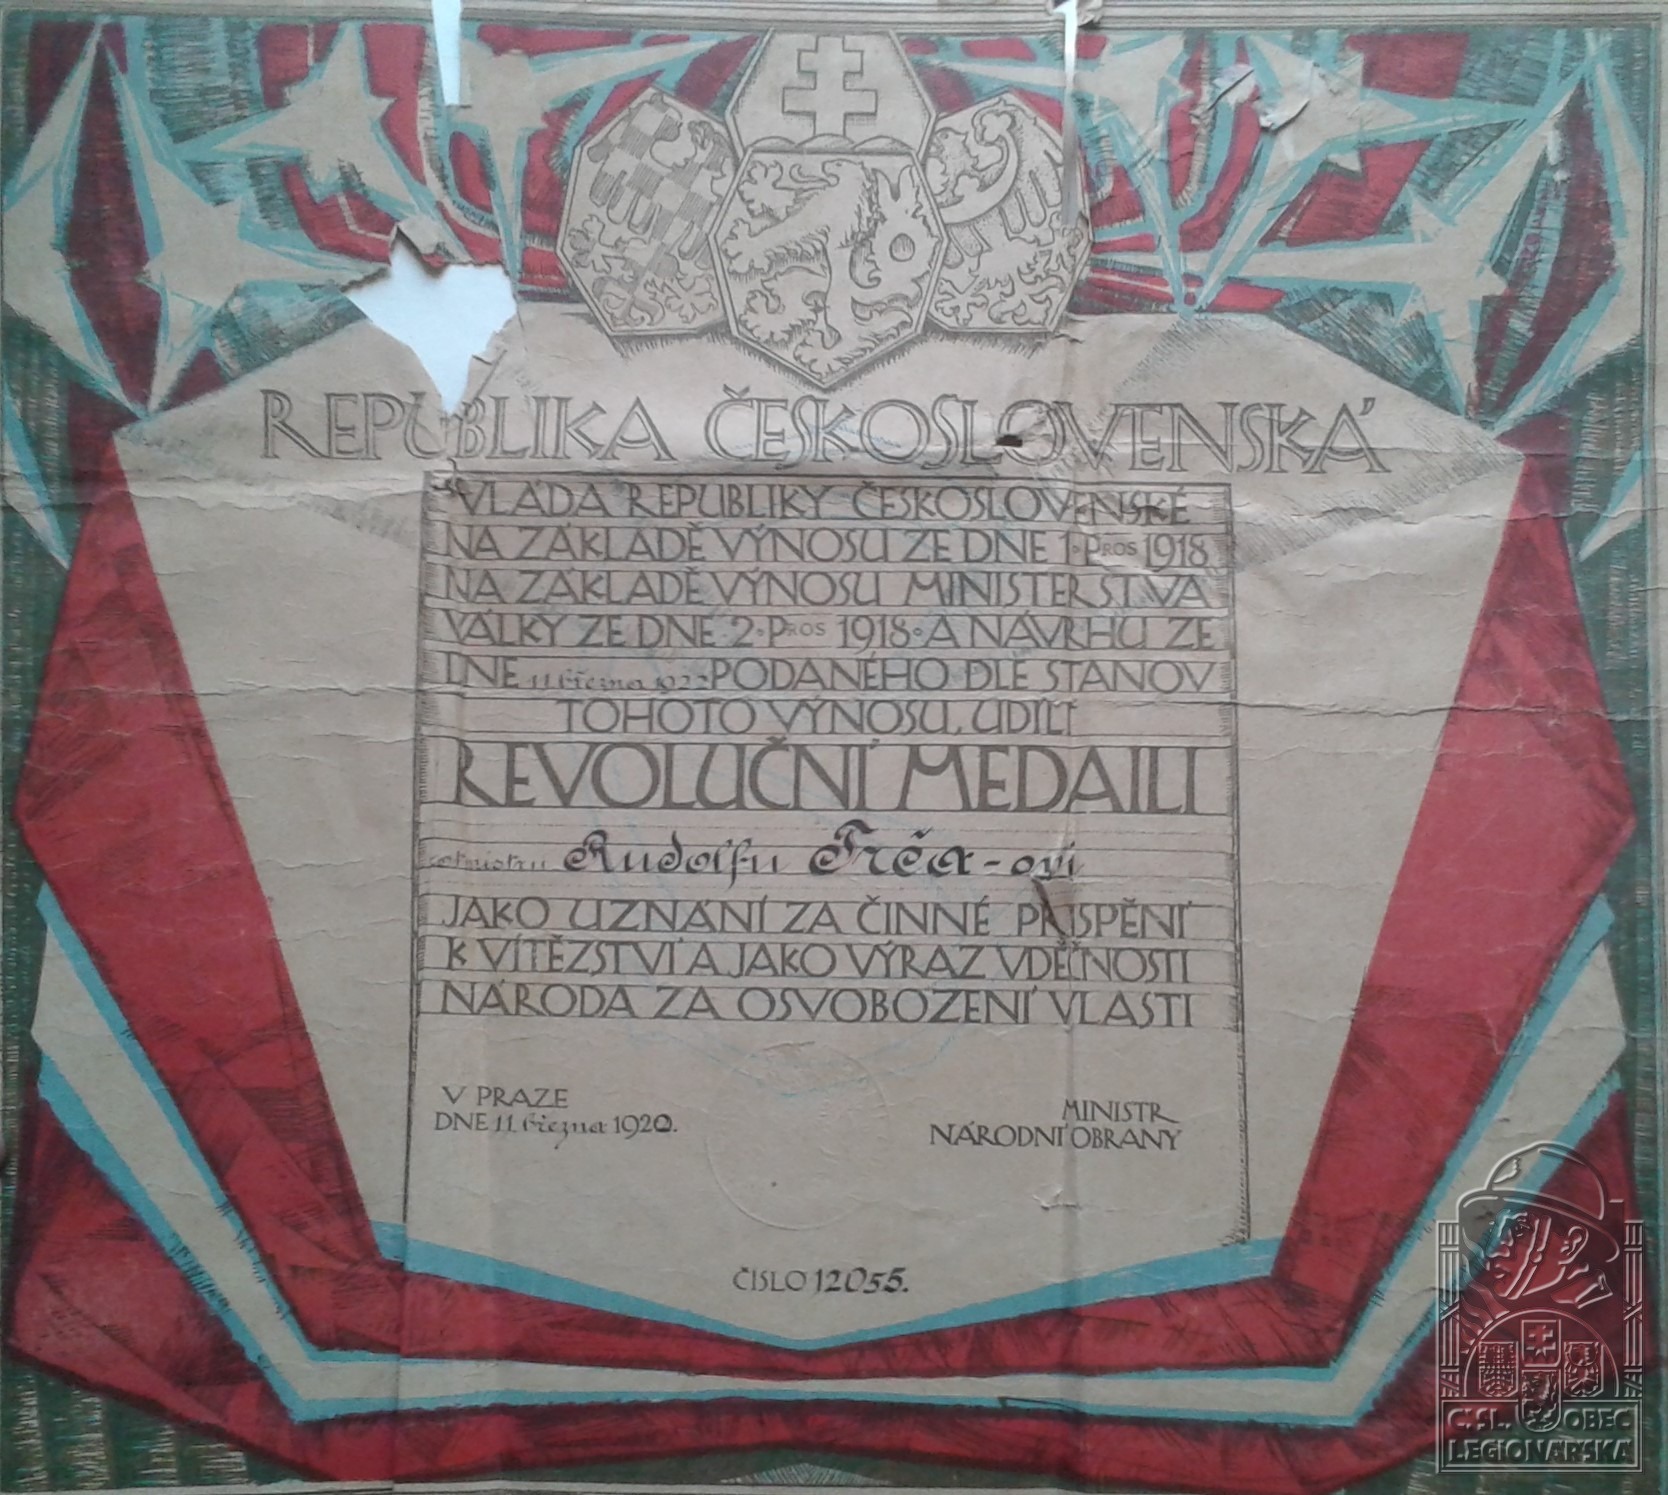 REPUBLIKA ČESKOSLOVENSKÁ
VLÁDA REPUBLIKY ČESKOSLOVENSKÉ
NA ZÁKLADĚ VÝNOSU ZE DNE 1. PROS 1918
NA ZÁKLADĚ VÝNOSU MINISTERSTVA
VÁLKY ZE DNE 2. PROS 1918. A NÁVRHU ZE
DNE 11. března 1922 PODANÉHO DLE STANOV
TOHOTO VÝNOSU, UDÍLÍ
REVOLUČNÍ MEDAILI
rotmistru Rudolfu Frča-ovi
JAKO UZNÁNÍ ZA ČINNÉ PŘISPĚNÍ
K VÍTĚZSTVÍ A JAKO VÝRAZ VDĚČNOSTI
NÁRODA ZA OSVOBOZENÍ VLASTI
V PRAZE
DNE 11. března 1920.
MINISTR
NÁRODNÍ OBRANY
ČÍSLO 12055.
Č. SL. OBEC
LEGIONÁŘSKÁ